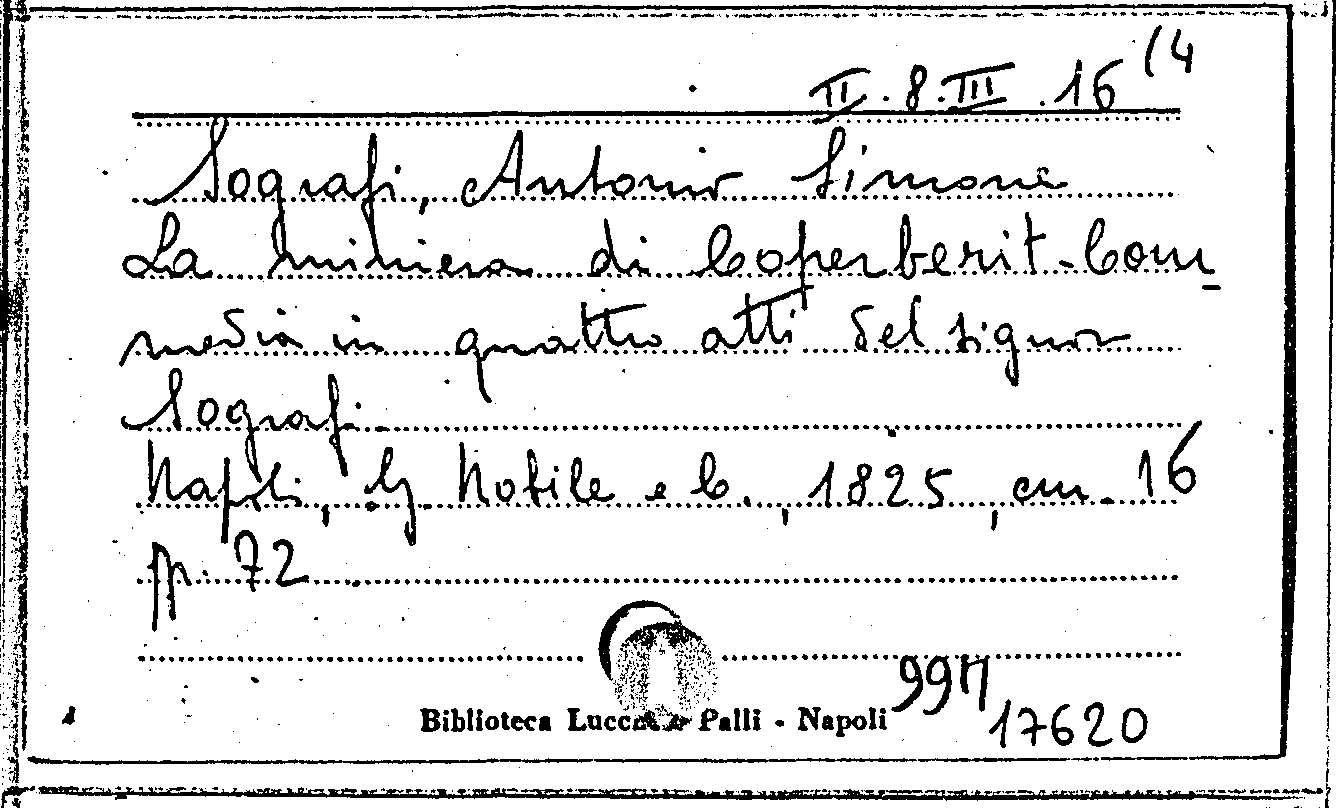 II.8.III.16(4
Sografi, Antonio Simone
La miniera di Coperberit - Com
media in quattro atti del signor
Sografi.
Napoli, G. Nobile e C., 1825, cm. 16
pp. 72
Biblioteca Lucchesi Palli - Napoli
17620